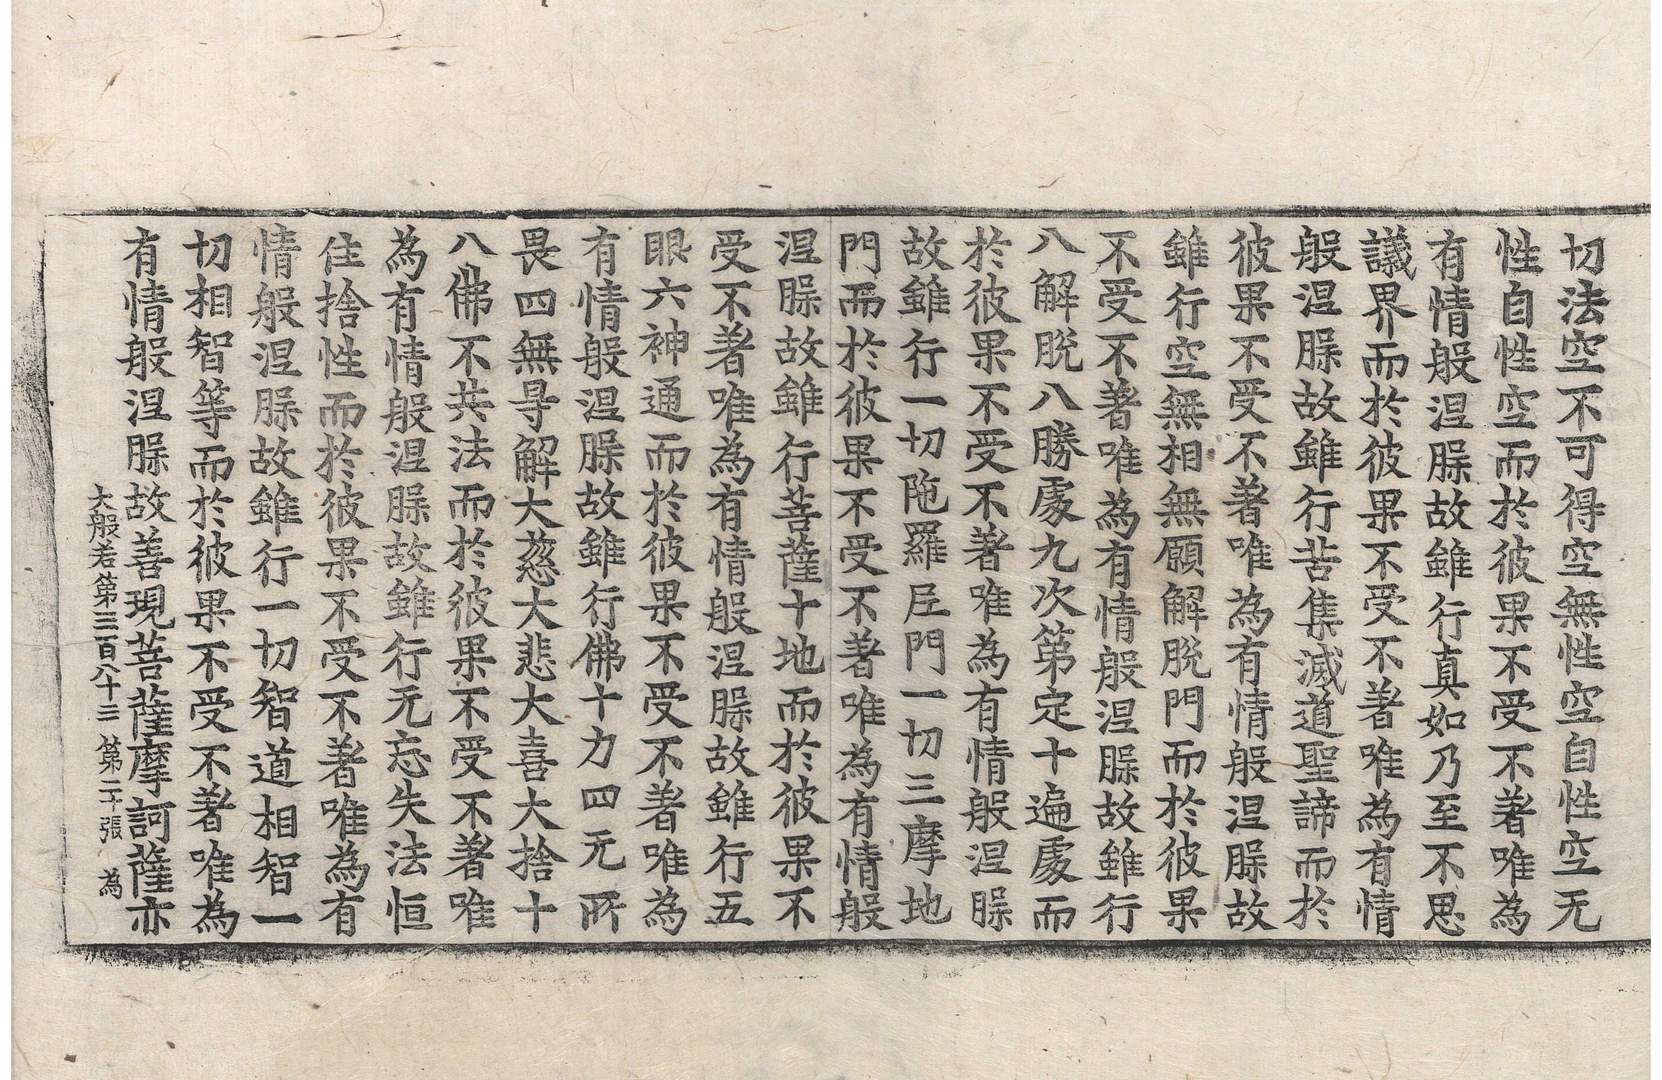 切法空不可得空無性空自性空无
性自性空而於彼果不受不著唯為
有情般涅脲故雖行真如乃至不思
議界而於彼果不受不著唯為有情
般涅脲故雖行苦集滅道聖諦而於
彼果不受不著唯為有情般涅脲故
雖行空無相無願解脫門而於彼果
不受不著唯為有情般涅脲故雖行
八解脫八勝處九次第定十遍處而
於彼果不受不著唯為有情般涅脲
故雖行一切陁羅𡰱門一切三摩地
門而於彼果不受不著唯為有情般
涅脲故雖行菩薩十地而於彼果不
受不著唯為有情般涅脲故雖行五
眼六神通而於彼果不受不著唯為
有情般涅脲故雖行佛十力四无所
畏四無㝵解大慈大悲大喜大捨十
八佛不共法而於彼果不受不著唯
為有情般涅脲故雖行无忘失法恒
住捨性而於彼果不受不著唯為有
情般涅脲故雖行一切智道相智一
切相智等而於彼果不受不著唯為
有情般涅脲故善現菩薩摩訶薩亦
大般若第三百八十三 第二十張 為